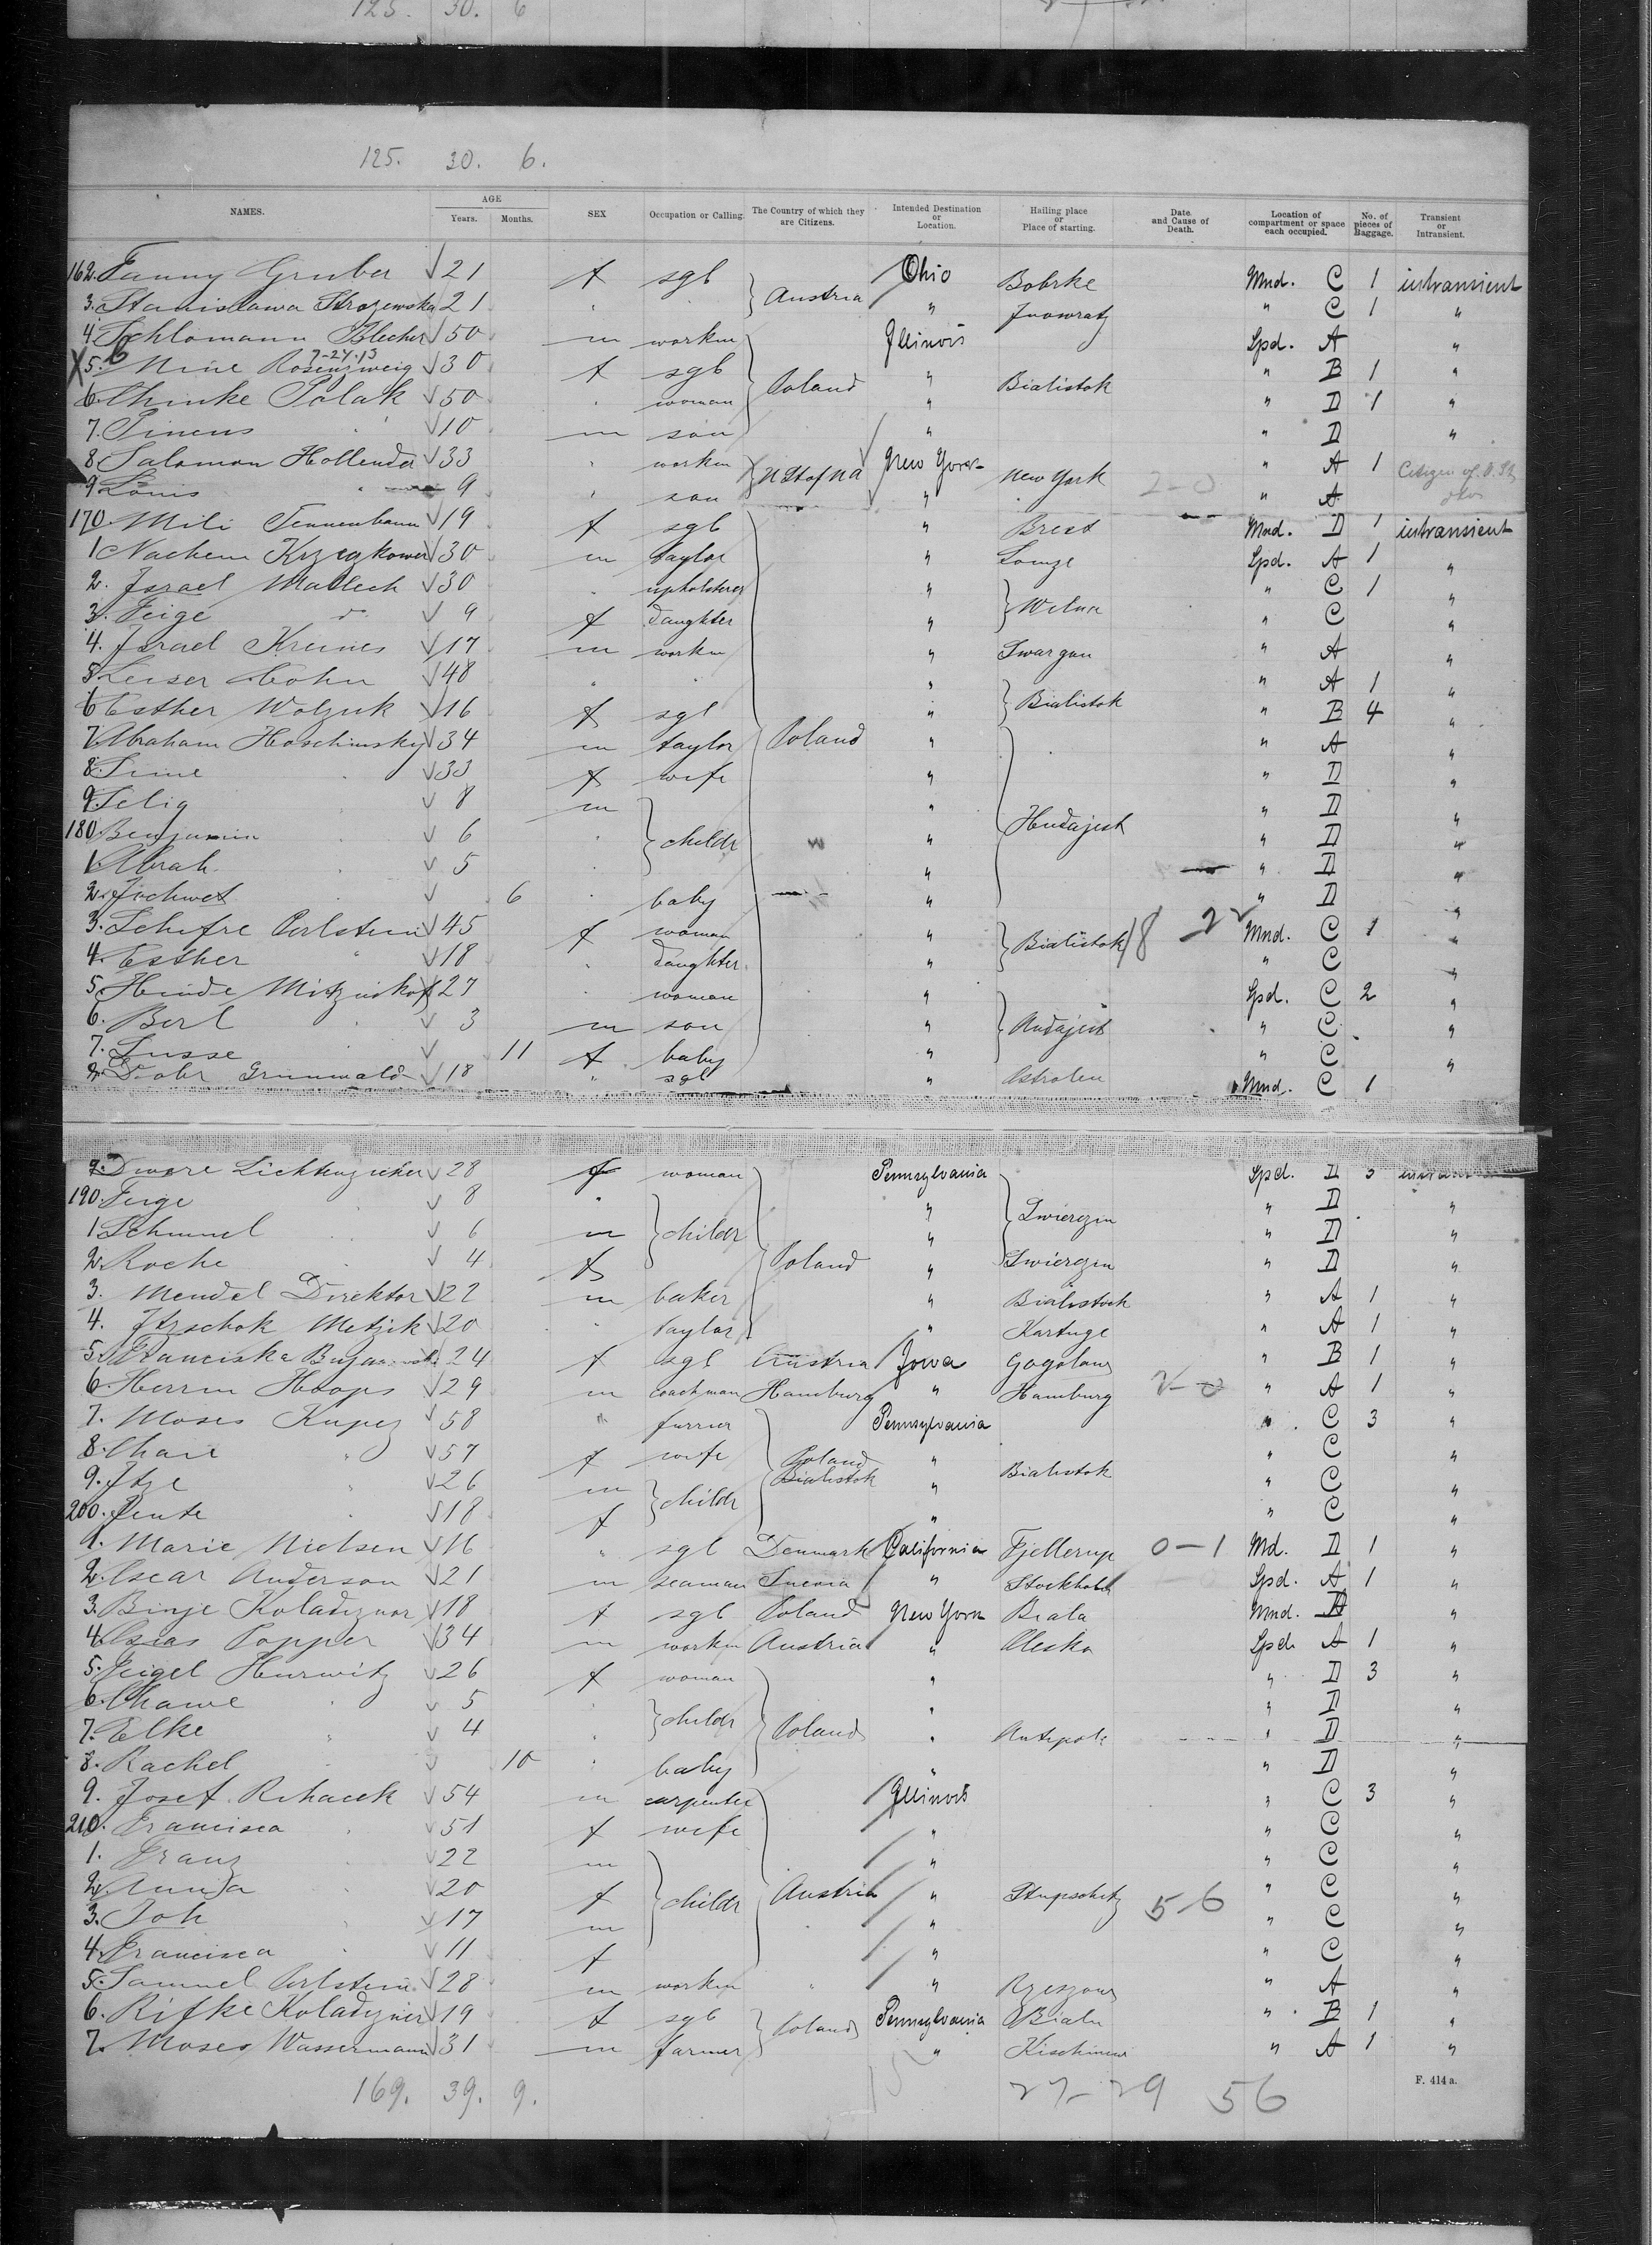 125. 30. 6
125. 30. 6.
NAMES. AGE Years. Months. SEX Occupation or Calling. The Country of which they are Citizens. Intended Destination or Location. Hailing place or Place of starting. Date and Cause of Death. Location of compartment or space each occupied. No. of pieces of Baggage. Transient or Intransient.
162. Fanny Gruber 21 f sgl Austria Ohio Bobrke Mnd. C 1 intransient
3. Stanislawa Strozewska 21 " " " Inowratz " C 1 "
4. Schlomann Blecher 50 m workm Illinois Spd. A "
7-24-13
X 5. Mine Rosenzweig 30 f sgl Poland " Bialistok " B 1 "
6. Chinke Polak 50 " woman " " D 1 "
7. Pincus " 10 m son " " D "
8. Salomon Hollender 33 " workm U St of NA New York New York " A 1 Citizen of U. St.
9. Louis " 9 " son " 2-0 " A do
170. Mili Tennenbaum 19 f sgl " Brest Mnd. D 1 intransient
1. Nachem 30 m taylor " Lomze Spd. A 1 "
2. Israel Mallech 30 " upholsterer " Wilna " C 1 "
3. Feige do 9 f daughter " " C "
4. Israel Kreines 17 m workm " Swargan " A "
5. Leiser Cohn 48 " " " Bialistok " A 1 "
6. Esther Wolzuk 16 f sgl " " B 4 "
7. Abraham Hoschinsky 34 m taylor Poland " " A "
8. Sime " 33 f wife " " D "
9. Selig 8 m " " D "
180. Benjamin " 6 " childr " Hudajesk " D "
1. Abrah " 5 " " " D "
2. Jochwet 6 " baby " " D "
3. Schifre Perlstein 45 f woman " Bialistok 18 22 Mnd. C 1 "
4. Esther " 18 " daughter " " C "
5. Heinde 27 " woman " Spd. C 2 "
6. Berl " 3 m son " " C "
7. Lusse " 11 f baby " " C "
8. Dobr Grunwald 18 " sgl " Ostrolen Mnd. C 1
9. Dwore Lichtenzieher 28 f woman Pennsylvania Spd. D 3
190. Feige " 8 " " Zwierzin " D "
1. Schmuel " 6 m childr " " D "
2. Roche " 4 f Poland " Swierzin " D "
3. Mendel Direktor 22 m baker " Bialistock " A 1 "
4. Itzschok Metzik 20 " taylor " Kartuze " A 1 "
5. Franciska 24 f sgl Austria Iowa Gogolow " B 1 "
6. Herm Hoops 29 m coachman Hamburg " Hamburg 2-0 " A 1 "
7. Moses Kupez 58 " furrier Pennsylvania " C 3 "
8. Chaie " 57 f wife Poland " Bialistok " C "
9. Itze " 26 m childr Bialistok " " C "
200. Pente " 18 f " " C "
1. Marie Nielsen 16 " sgl Denmark California Fjellerup 0-1 Md. D 1 "
2. Oscar Anderson 21 m seaman Suecia " Stockholm Spd. A 1 "
3. Binje Koladeznar 18 f sgl Poland New York Biala Mnd. D "
4. Osias Popper 34 m workm Austria " Olesko Spd. A 1 "
5. Feigel Hurwitz 26 f woman " " D 3 "
6. Chawe " 5 " childr " " D "
7. Elke " 4 " Poland " Antipole " D "
8. Rachel 10 " baby " " D "
9. Josef Rihacek 54 m carpenter Illinois " C 3 "
210. Francisca " 51 f wife " " C "
1. Franz " 22 m " " C "
2. Anna 20 f childr Austria " Stupschitz 5-6 " C "
3. Joh " 17 m " " C "
4. Francisca " 11 f " " C "
5. Samuel Perlstein 28 m workm " " Rzeszow " A "
6. Rifke Koladezner 19 f sgl Poland Pennsylvania Biala " B 1 "
7. Moses Wassermann 31 m farmer " Kischinew " A 1 "
169. 39. 9. 27-29 56 F. 414 a.